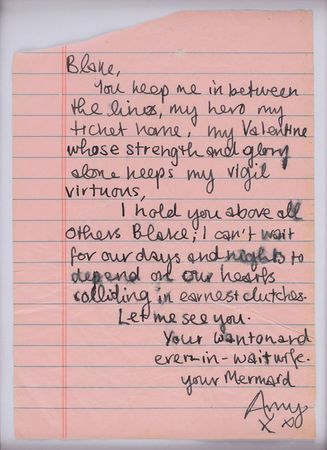 Blake,
You keep me in between
the lines, my hero my
ticket home, my Valentine
whose strength and glory
alone keeps my vigil
virtuous,
I hold you above all
others Blake; I can't wait
for our days and nights to
depend on our hearts
colliding in earnest clutches.
Let me see you.
Your wanton and
ever-in-wait wife.
your Mermaid
Amy
x x